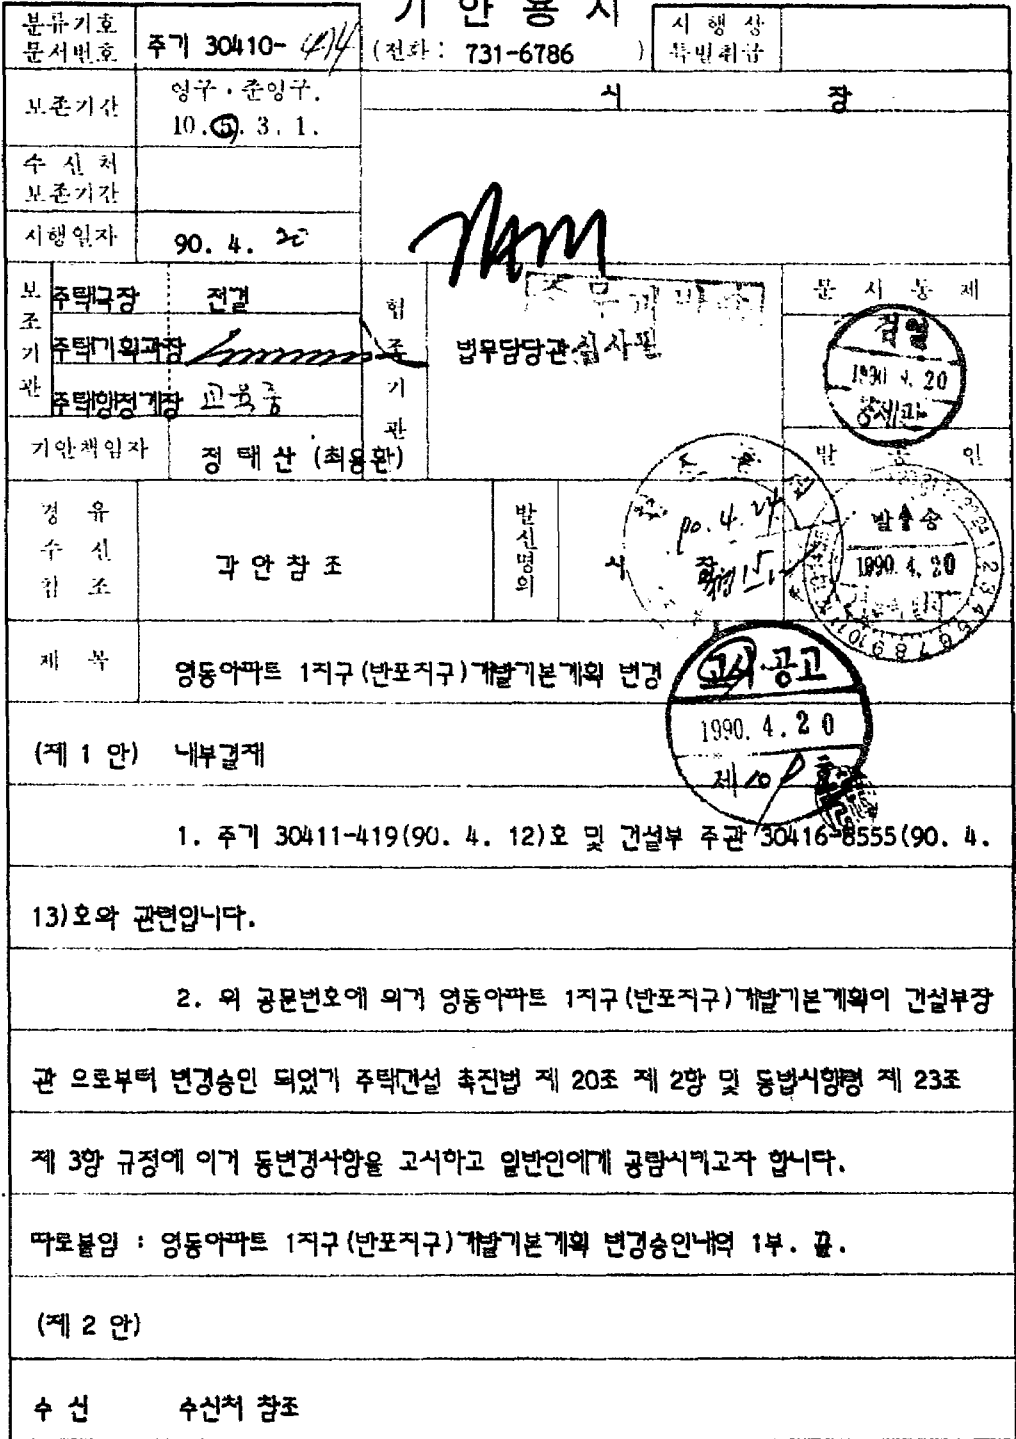 기 안 용 지
분류기호
문서번호
주기 30410-
(전화 : 731-6786 )
시 행 상
특별취급
보존기간
영구 · 준영구.
10. 5. 3. 1.
시 장
수 신 처
보존기간
시행일자
90. 4. 20
보조기관
주택국장 전결
협조기관
문 서 통 제
주택기획과장
법무담당관 심사필
검열
1990 4. 20
통제관
주택행정계장 교육중
기안책임자
정태산 (최용환)
발 송 인
경 유
수 신
참 조
각 안 참 조
발신명의
시 장
90. 4. 24
발송
1990. 4. 20
제 목
영동아파트 1지구(반포지구)개발기본계획 변경
고시·공고
1990. 4. 20
제 호
(제 1 안) 내부결재
1. 주기 30411-419(90. 4. 12)호 및 건설부 주관 30416-8555(90. 4.
13)호와 관련입니다.
2. 위 공문번호에 의거 영동아파트 1지구(반포지구)개발기본계획이 건설부장
관 으로부터 변경승인 되었기 주택건설 촉진법 제 20조 제 2항 및 동법시행령 제 23조
제 3항 규정에 이거 동변경사항을 고시하고 일반인에게 공람시키고자 합니다.
따로붙임 : 영동아파트 1지구(반포지구)개발기본계획 변경승인내역 1부. 끝.
(제 2 안)
수 신 수신처 참조